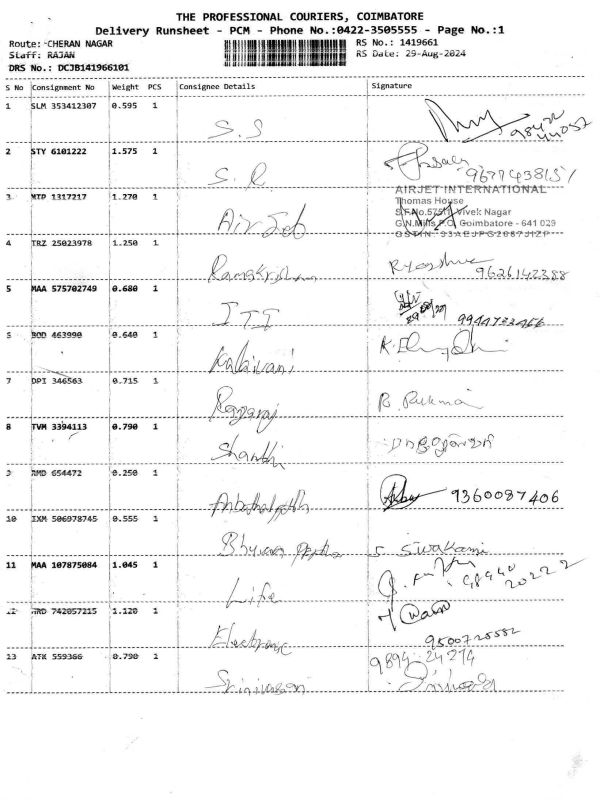 THE PROFESSIONAL COURIERS, COIMBATORE
Delivery Runsheet - PCM - Phone No.:0422-3505555 - Page No.:1
Route: CHERAN NAGAR RS No.: 1419661
Staff: RAJAN RS Date: 29-Aug-2024
DRS No.: DCJB141966101
S No Consignment No Weight PCS Consignee Details Signature
1 SLM 353412307 0.595 1
S.S
2 STY 6101222 1.575 1
S.R
AIRJET INTERNATIONAL
3 MTP 1317217 1.270 1 Thomas House
Vivek Nagar
Air Job G.N.Mills P.O. Coimbatore - 641 029
4 TRZ 25023978 1.250 1
Ramakrishna 9626142388
5 MAA 575702749 0.680 1
ITI 9944732466
6 BOD 463990 0.640 1
Kalaivani
7 DPI 346563 0.715 1
Rangaraj R. Rukmani
8 TVM 3394113 0.790 1
Shanthi
9 AMD 654472 0.250 1
9360087406
10 IXM 506978745 0.555 1
S. Sivakami
11 MAA 107875084 1.045 1
Life
12 TRD 742057215 1.120 1
Electronic 9500728582
13 ATK 559366 0.790 1 9894 24274
Srinivasan